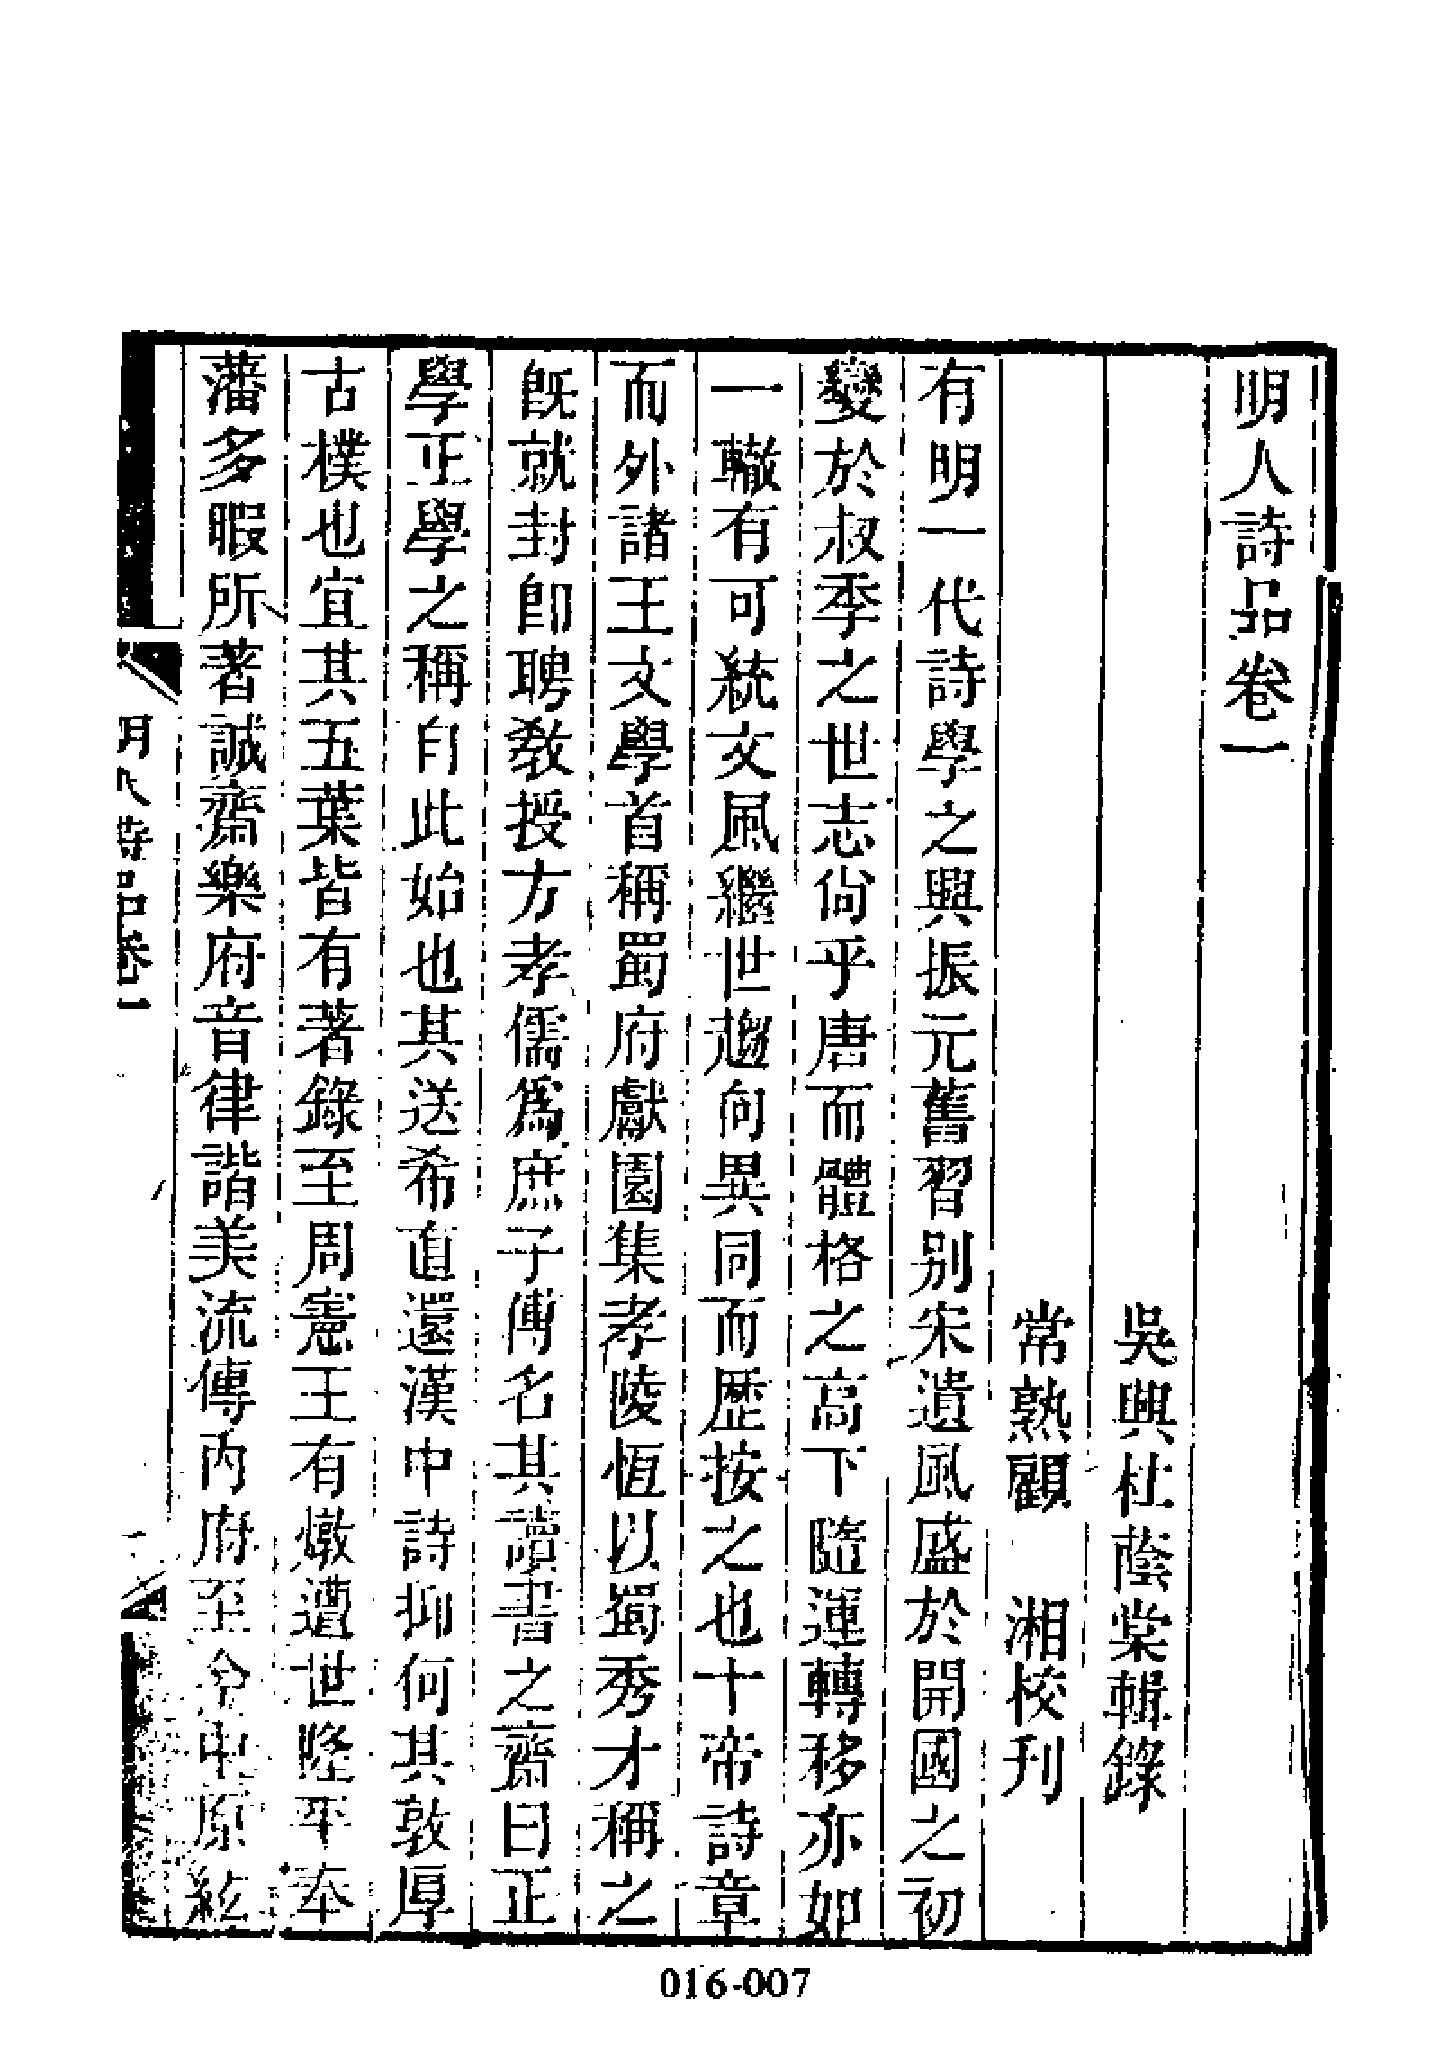 明人詩品卷一
吳興杜蔭棠輯錄
常熟顧　湘校刊
有明一代詩學之興振元舊習別宋遺風盛於開國之初
變於叔季之世志尙乎唐而體格之高下隨運轉移亦如
一轍有可統文風繼世趨向異同而歷按之也十帝詩章
而外諸王文學首稱蜀府獻園集孝陵恆以蜀秀才稱之
旣就封卽聘敎授方孝儒爲庶子傅名其讀書之齋曰正
學正學之稱自此始也其送希直還漢中詩抑何其敦厚
古樸也宜其五葉皆有著錄至周憲王有燉遭世隆平奉
藩多暇所著誠齋樂府音律諧美流傳內府至今中原絃
明人詩品卷一
016-007